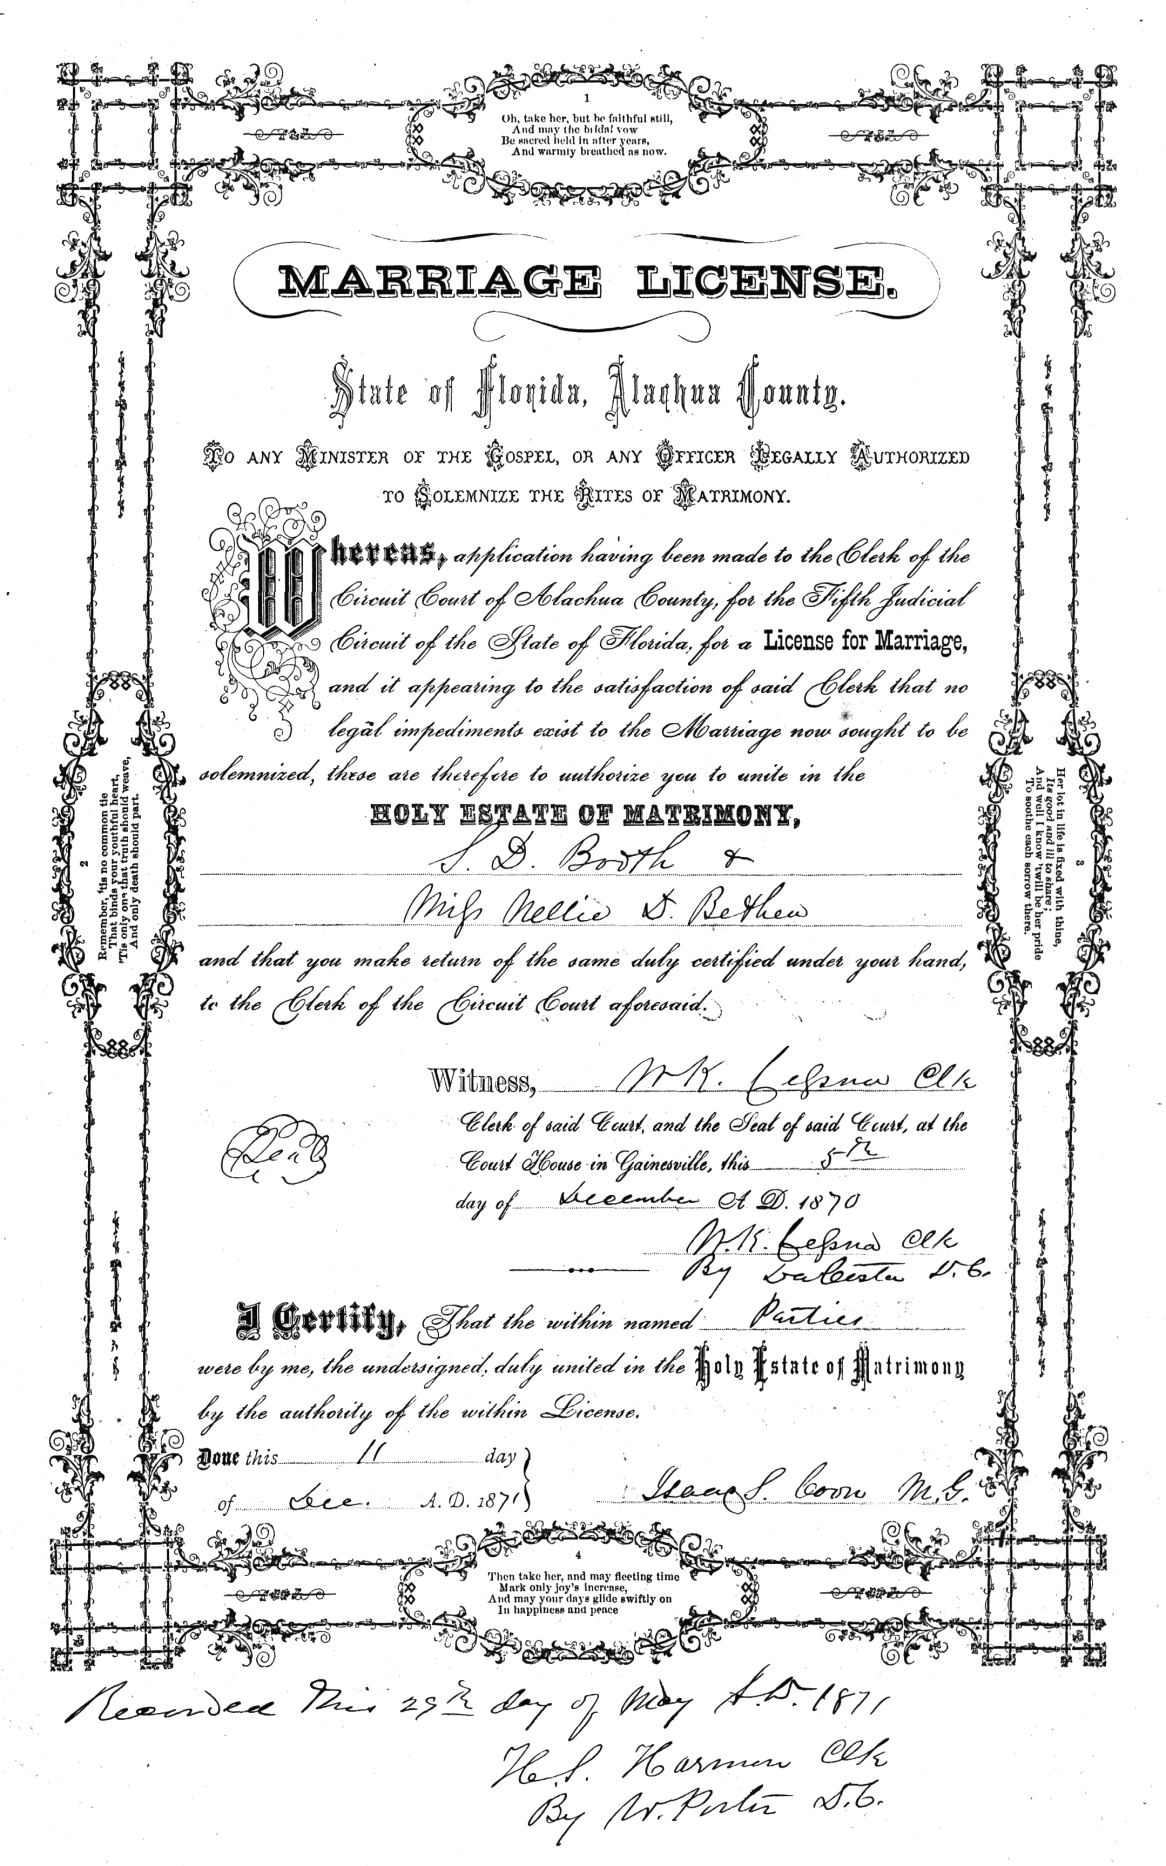 1
Oh, take her, but be faithful still,
And may the bridal vow
Be sacred held in after years,
And warmly breathed as now.
MARRIAGE LICENSE.
State of Florida, Alachua County.
TO ANY MINISTER OF THE GOSPEL, OR ANY OFFICER LEGALLY AUTHORIZED
TO SOLEMNIZE THE RITES OF MATRIMONY.
Whereas, application having been made to the Clerk of the
Circuit Court of Alachua County, for the Fifth Judicial
Circuit of the State of Florida, for a License for Marriage,
and it appearing to the satisfaction of said Clerk that no
legal impediments exist to the Marriage now sought to be
solemnized, these are therefore to authorize you to unite in the
HOLY ESTATE OF MATRIMONY,
S. D. Booth &
Miss Nellie D. Bethea
and that you make return of the same duly certified under your hand,
to the Clerk of the Circuit Court aforesaid.
2
Remember, 'tis no common tie
That binds your youthful heart,
'Tis only one that truth should weave,
And only death should part.
3
Her lot in life is fixed with thine,
Its good and ill to share;
And well I know 'twill be her pride
To soothe each sorrow there.
Witness, W K. Cessna Clk
Clerk of said Court, and the Seal of said Court, at the
Seal
Court House in Gainesville, this 5th
day of December A. D. 1870
W. K. Cessna Clk
By D. C.
I Certify, That the within named Parties
were by me, the undersigned, duly united in the Holy Estate of Matrimony
by the authority of the within License.
Done this 11 day
of Dec. A. D. 1871
Isaac S. Coon M. G.
4
Then take her, and may fleeting time
Mark only joy's increase,
And may your days glide swiftly on
In happiness and peace
Recorded this 29th day of May A. D. 1871
H. S. Harmon Clk
By W. Porter D. C.